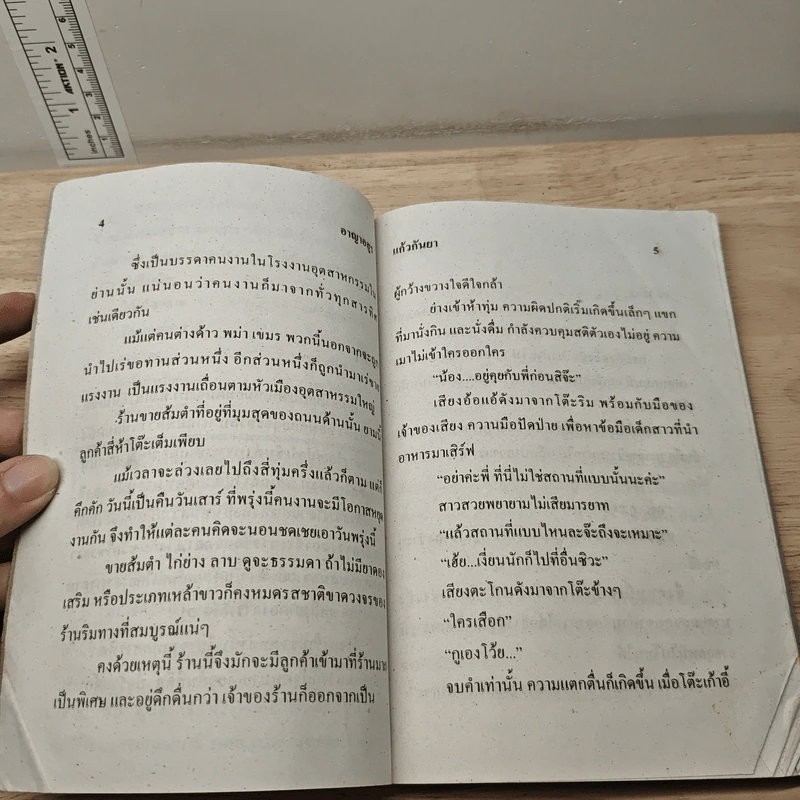 inches 1 2
AKTION
3 4 5 6
4
อาญาอสูร
ซึ่งเป็นบรรดาคนงานในโรงงานอุตสาหกรรมใน
ย่านนั้น แน่นอนว่าคนงานก็มาจากทั่วทุกสารทิศ
เช่นเดียวกัน
แม้แต่คนต่างด้าว พม่า เขมร พวกนี้นอกจากจะถูก
นำไปเร่ขอทานส่วนหนึ่ง อีกส่วนหนึ่งก็ถูกนำมาเร่ขาย
แรงงาน เป็นแรงงานเถื่อนตามหัวเมืองอุตสาหกรรมใหญ่
ร้านขายส้มตำที่อยู่ที่มุมสุดของถนนด้านนั้น ยามนี้
ลูกค้าสี่ห้าโต๊ะเต็มเพียบ
แม้เวลาจะล่วงเลยไปถึงสี่ทุ่มครึ่งแล้วก็ตาม แต่ก็
คึกคัก วันนี้เป็นคืนวันเสาร์ ที่พรุ่งนี้คนงานจะมีโอกาสหยุด
งานกัน จึงทำให้แต่ละคนคิดจะนอนชดเชยเอาวันพรุ่งนี้
ขายส้มตำ ไก่ย่าง ลาบ ดูจะธรรมดา ถ้าไม่มียาดอง
เสริม หรือประเภทเหล้าขาวก็คงหมดรสชาติขาดวงจรของ
ร้านริมทางที่สมบูรณ์แน่ๆ
คงด้วยเหตุนี้ ร้านนี้จึงมักจะมีลูกค้าเข้ามาที่ร้านมาก
เป็นพิเศษ และอยู่ดึกดื่นกว่า เจ้าของร้านก็ออกจากเป็น
แก้วกันยา
5
ผู้กว้างขวางใจดีใจกล้า
ย่างเข้าห้าทุ่ม ความผิดปกติเริ่มเกิดขึ้นเล็กๆ แขก
ที่มานั่งกิน และนั่งดื่ม กำลังควบคุมสติตัวเองไม่อยู่ ความ
เมาไม่เข้าใครออกใคร
“น้อง....อยู่คุยกับพี่ก่อนสิจ๊ะ”
เสียงอ้อแอ้ดังมาจากโต๊ะริม พร้อมกับมือของ
เจ้าของเสียง ควานมือปัดป่าย เพื่อหาข้อมือเด็กสาวที่นำ
อาหารมาเสิร์ฟ
“อย่าค่ะพี่ ที่นี่ไม่ใช่สถานที่แบบนั้นนะค่ะ”
สาวสวยพยายามไม่เสียมารยาท
“แล้วสถานที่แบบไหนละจ๊ะถึงจะเหมาะ”
“เฮ้ย...เงี่ยนนักก็ไปที่อื่นซิวะ”
เสียงตะโกนดังมาจากโต๊ะข้างๆ
“ใครเสือก”
“กูเองโว้ย...”
จบคำเท่านั้น ความแตกตื่นก็เกิดขึ้น เมื่อโต๊ะเก้าอี้